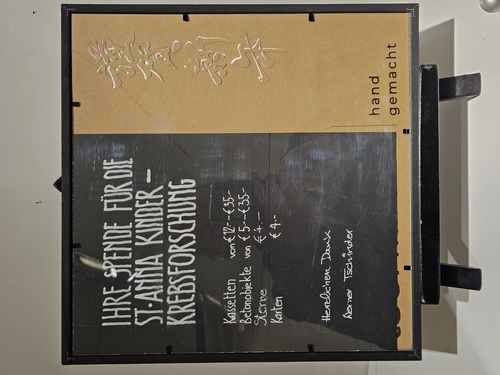 IHRE SPENDE FÜR DIE
ST. ANNA KINDER-
KREBSFORSCHUNG
Kassetten von €12.--€35.-
Betonobjekte von €5.--€35.-
Sterne €4.-
Karten €4.-
Herzlichen Dank
Werner Tschinder
hand
gemacht